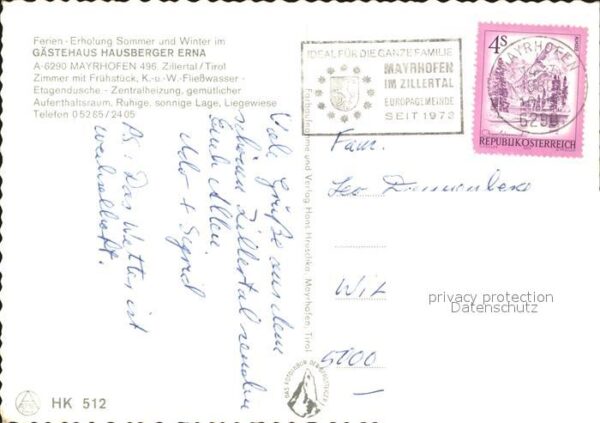 Ferien-Erholung Sommer und Winter im
GÄSTEHAUS HAUSBERGER ERNA
A-6290 MAYRHOFEN 496, Zillertal/Tirol
Zimmer mit Frühstück, K.-u.-W.-Fließwasser -
Etagendusche - Zentralheizung, gemütlicher
Aufenthaltsraum, Ruhige, sonnige Lage, Liegewiese
Telefon 0 52 65 / 24 05
IDEAL FÜR DIE GANZE FAMILIE
MAYRHOFEN
IM ZILLERTAL
EUROPAGEMEINDE
SEIT 1973
MAYRHOFEN
6290
4S
REPUBLIK ÖSTERREICH
Viele Grüße aus dem
schönen Zillertal senden
Euch Allen
+ Sigrid
PS: Das Wetter ist
wechselhaft.
und Verlag Hans Hruschka, Mayrhofen, Tirol
Fam.
Leo
5000
privacy protection
Datenschutz
HK 512